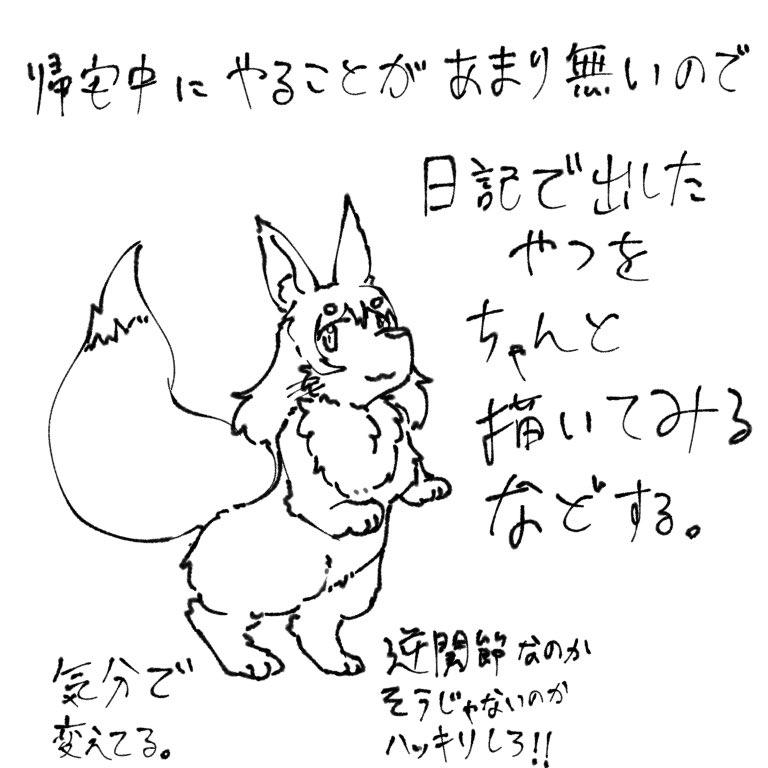 帰宅中にやることがあまり無いので
日記で出した
やつを
ちゃんと
描いてみる
などする。
気分で
変えてる。
逆関節なのか
そうじゃないのか
ハッキリしろ!!